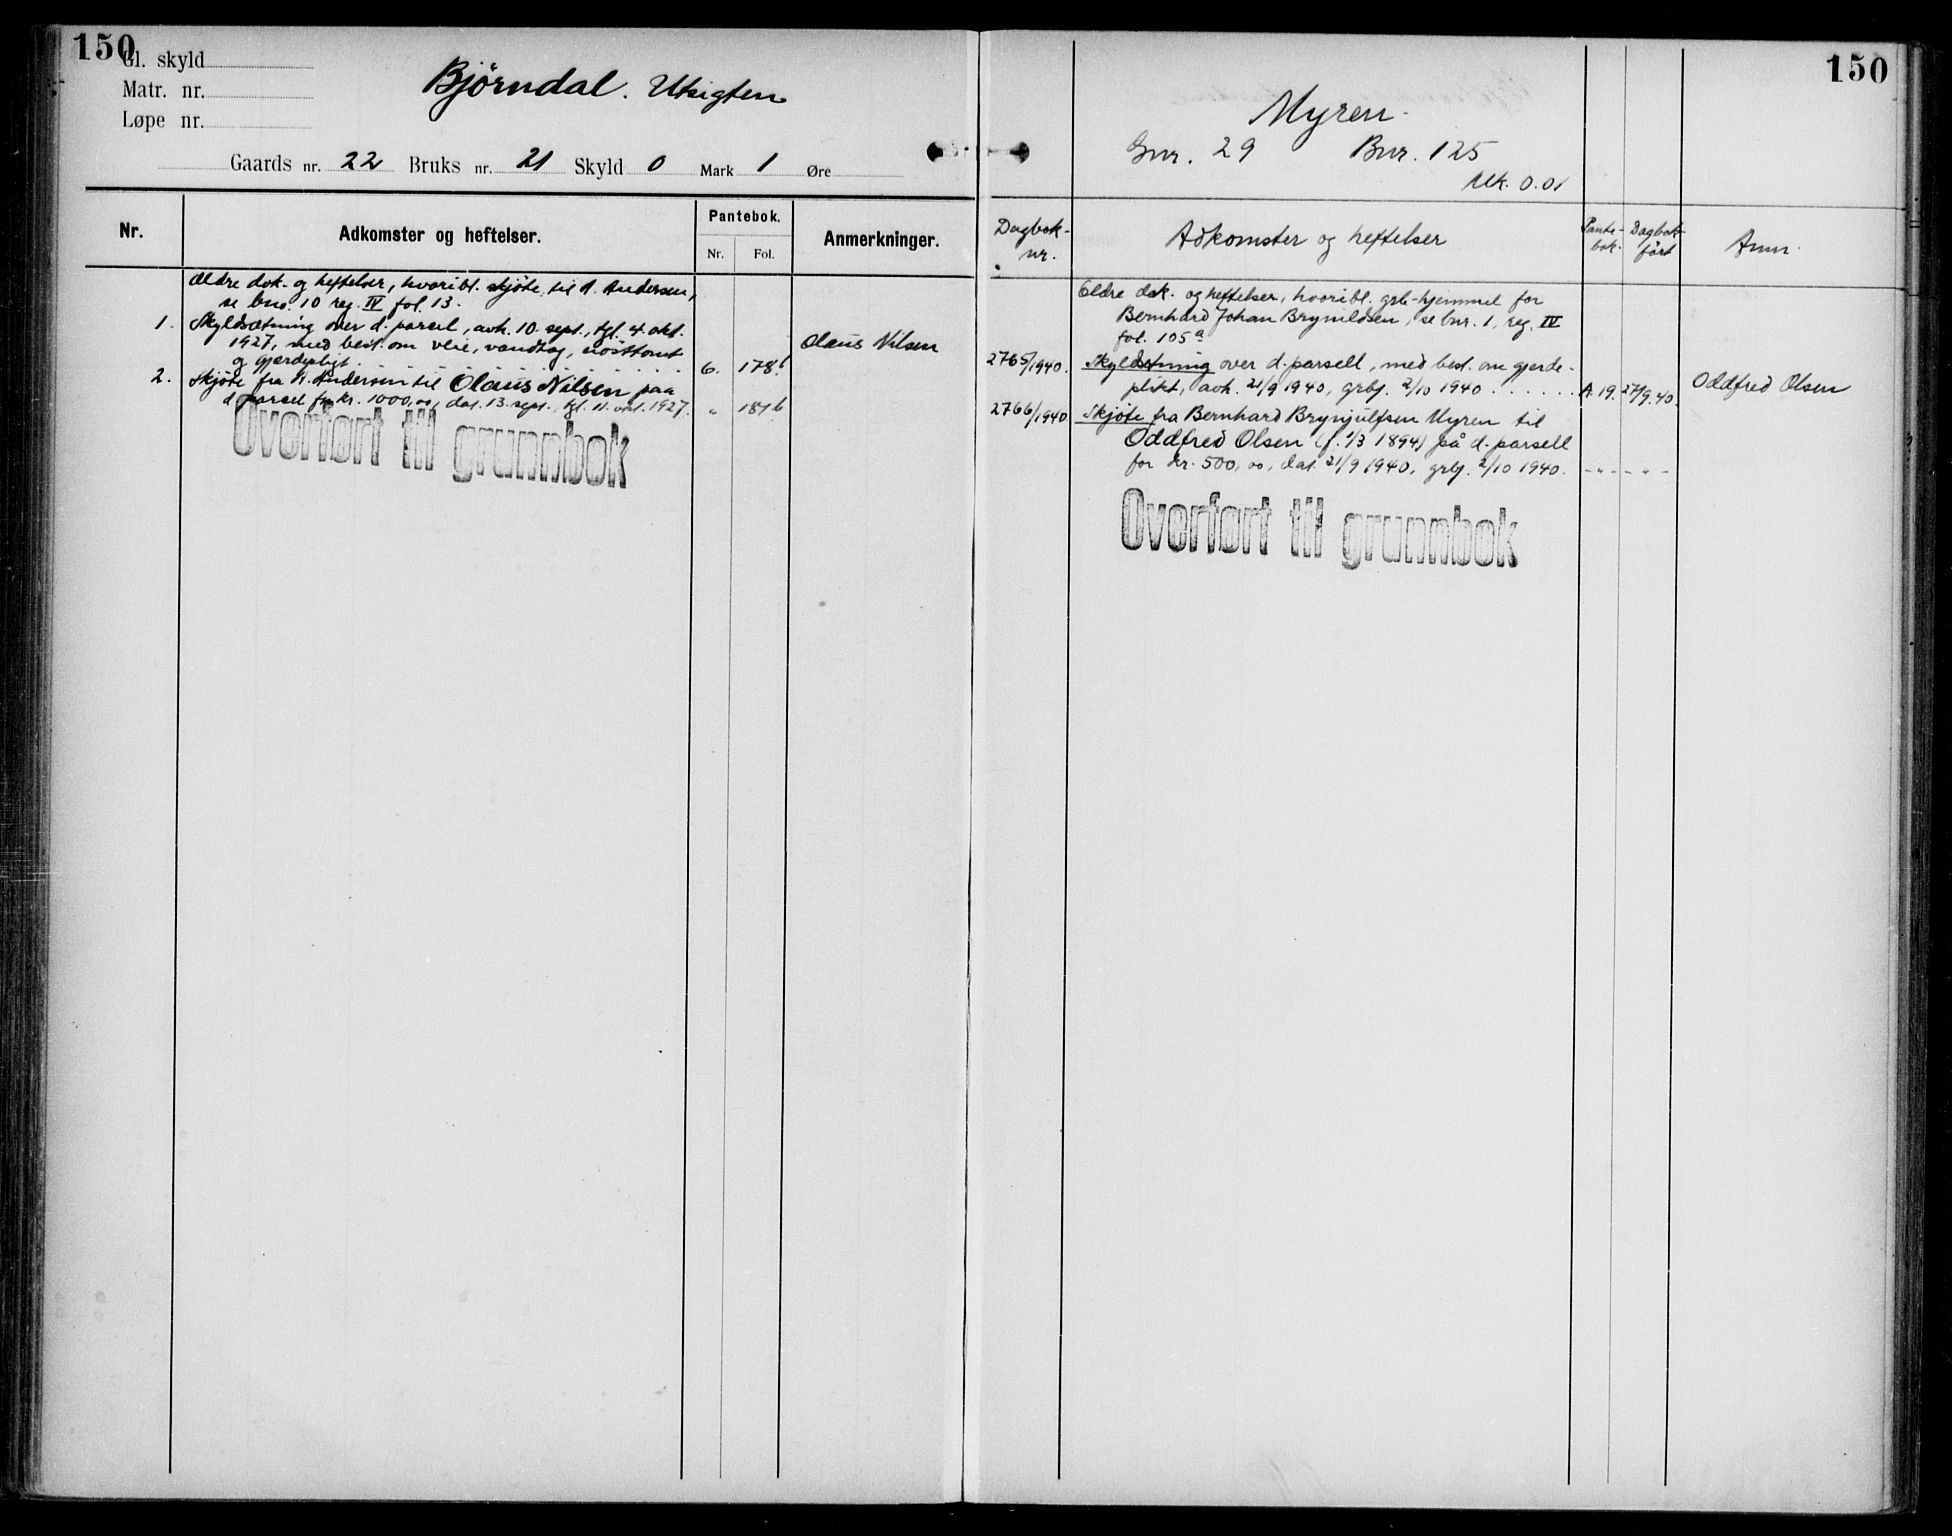 150
Gl. skyld
Matr. nr.
Løpe nr.
Bjørndal. Utsigten
Gaards nr. 22 Bruks nr. 21 Skyld 0 Mark 1 Øre
Nr. Adkomster og heftelser. Pantebok. Anmerkninger.
Nr. Fol.
Ældre dok. og heftelser, hvoribl. skjøte til A. Andersen,
se bno 10 reg. IV fol. 13.
1. Skyldsætning over d. parcel, avh. 10. sept., tgl. 4. okt.
1927, med best. om veie, vandtag, nøsttomt Olaus Nilsen
og gjærdepligt . . . . . . . . . . . . 6. 178b
2. Skjøte fra A. Andersen til Olaus Nilsen paa
d. parcel for kr. 1000,00, dat. 13. sept., tgl. 11. okt. 1927. " 181b
Overført til grunnbok
150
Myren.
Gnr. 29 Bnr. 125
Mk. 0.01
Dagbok-nr. Adkomster og heftelser Pante-bok. Dagbok-ført Anm.
Eldre dok. og heftelser, hvoribl. grb-hjemmel for
Bernhard Johan Brynildsen, se bnr. 1, reg. IV
fol. 105a
2765/1940. Skyldsetning over d. parsell, med best. om gjerde-
plikt, avh. 21/9 1940, grbf. 2/10 1940 . . . . . . A. 19. 27/9.40. Oddfred Olsen
2766/1940 Skjøte fra Bernhard Brynjulfsen Myren til
Oddfred Olsen (f. 1/3 1894) på d. parsell
for kr. 500,00, dat. 21/9 1940, grbf. 2/10 1940. - " - - " -
Overført til grunnbok